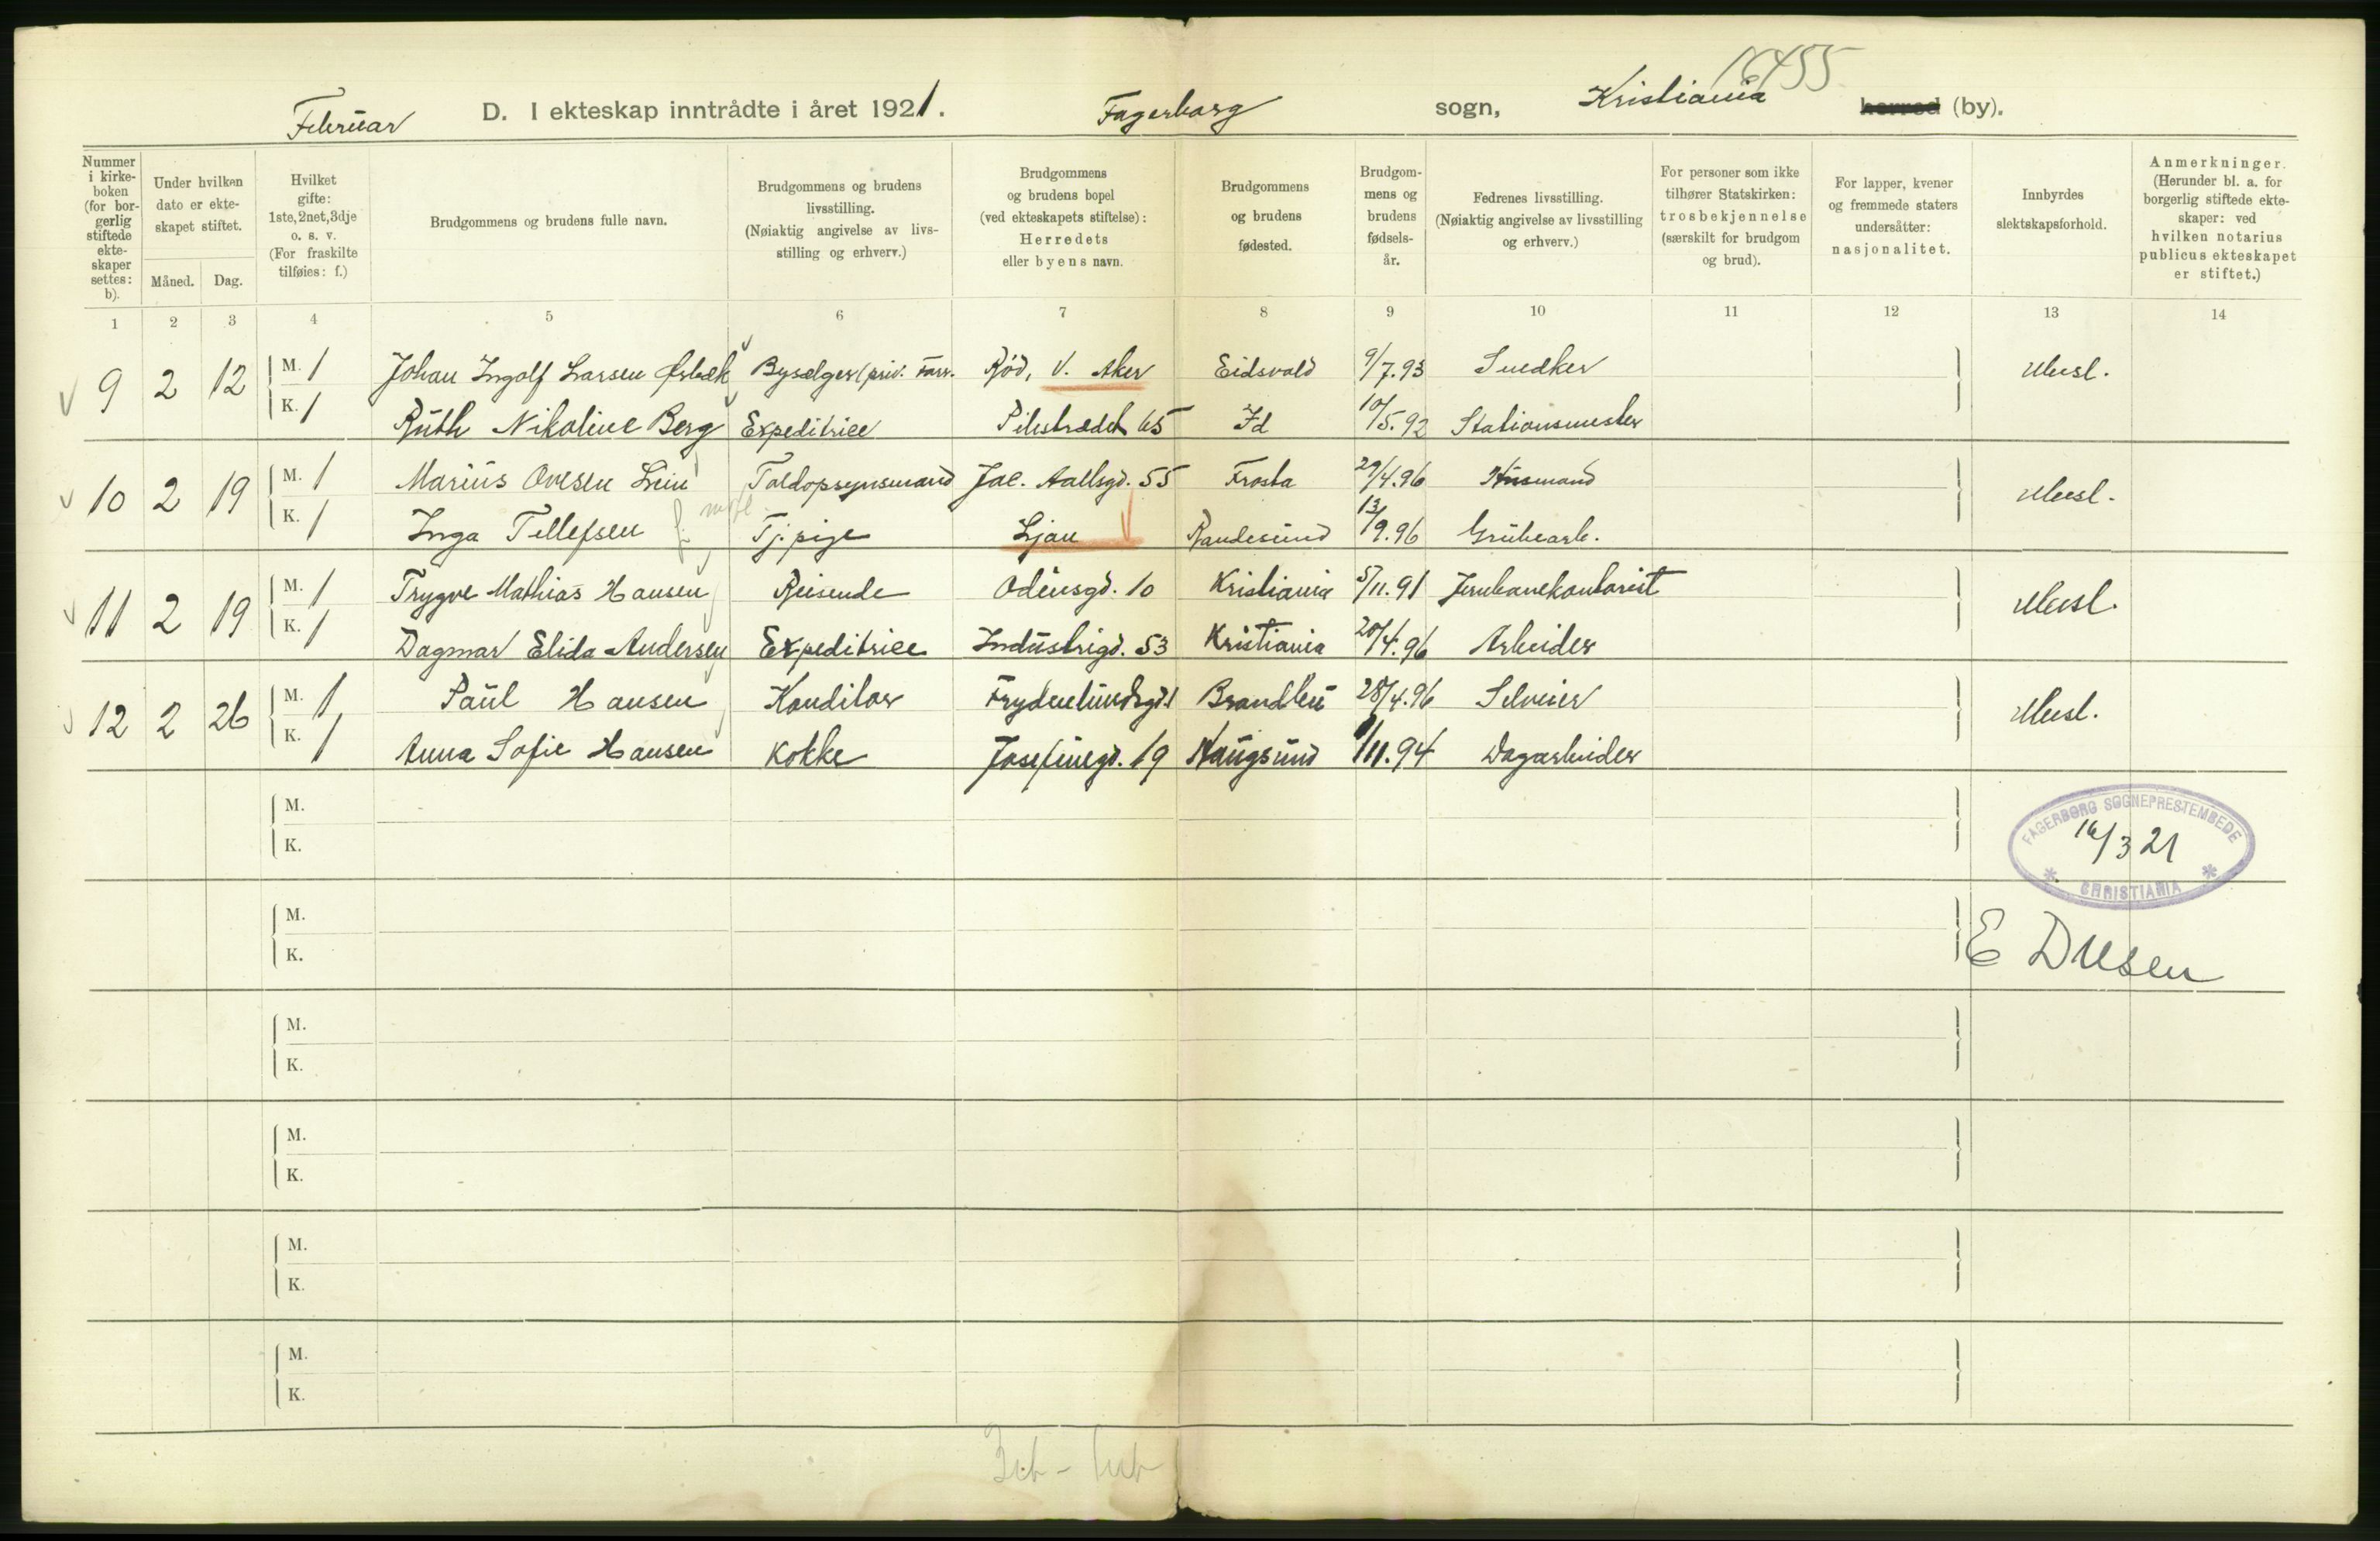 Februar D. I ekteskap inntrådte i året 1921. Fagerborg sogn, Kristiania herred (by).
16455
Nummer i kirkeboken (for borgerlig stiftede ekteskaper settes: b).
Under hvilken dato er ekteskapet stiftet.
Måned. Dag.
Hvilket gifte: 1ste, 2net, 3dje o. s. v. (For fraskilte tilføies: f.)
Brudgommens og brudens fulle navn.
Brudgommens og brudens livsstilling. (Nøiaktig angivelse av livsstilling og erhverv.)
Brudgommens og brudens bopel (ved ekteskapets stiftelse): Herredets eller byens navn.
Brudgommens og brudens fødested.
Brudgommens og brudens fødselsår.
Fedrenes livsstilling. (Nøiaktig angivelse av livsstilling og erhverv.)
For personer som ikke tilhører Statskirken: trosbekjennelse (særskilt for brudgom og brud).
For lapper, kvener og fremmede staters undersåtter: nasjonalitet.
Innbyrdes slektskapsforhold.
Anmerkninger. (Herunder bl. a. for borgerlig stiftede ekteskaper: ved hvilken notarius publicus ekteskapet er stiftet.)
1 2 3 4 5 6 7 8 9 10 11 12 13 14
9 2 12 M. 1 Johan Ingolf Larsen Ørbæk Byselger (priv. Forr. Rød, V. Aker Eidsvold 9/7.93 Snedker Ubesl.
K. 1 Ruth Nikoline Berg Expeditrice Pilestrædet 65 Id 10/5.92 Stationsmester
10 2 19 M. 1 Marius Ovesen Lein Toldopsynsmand Jac. Aallsgd. 55 Frosta 29/4.96 Husmand Ubesl.
K. 1 Inga Tellefsen Tj.pige Ljan Randesund 13/9.96 Grubearb.
11 2 19 M. 1 Trygve Mathias Hansen Reisende Odinsgd. 10 Kristiania 5/11.91 Jernbanekontorist Ubesl.
K. 1 Dagmar Elida Andersen Expeditrice Industrigd. 53 Kristiania 20/4.96 Arbeider
12 2 26 M. 1 Paul Hansen Konditor Frydenlundsgd.1 Brandbu 28/4.96 Selveier Ubesl.
K. 1 Anna Sofie Hansen Kokke Josefinegd. 19 Haugsund 1/11.94 Dagarbeider
M.
K.
FAGERBORG SOGNEPRESTEMBEDE
16/3 21
CHRISTIANIA
M.
K.
E Dusen
M.
K.
M.
K.
M.
K.
M.
K.